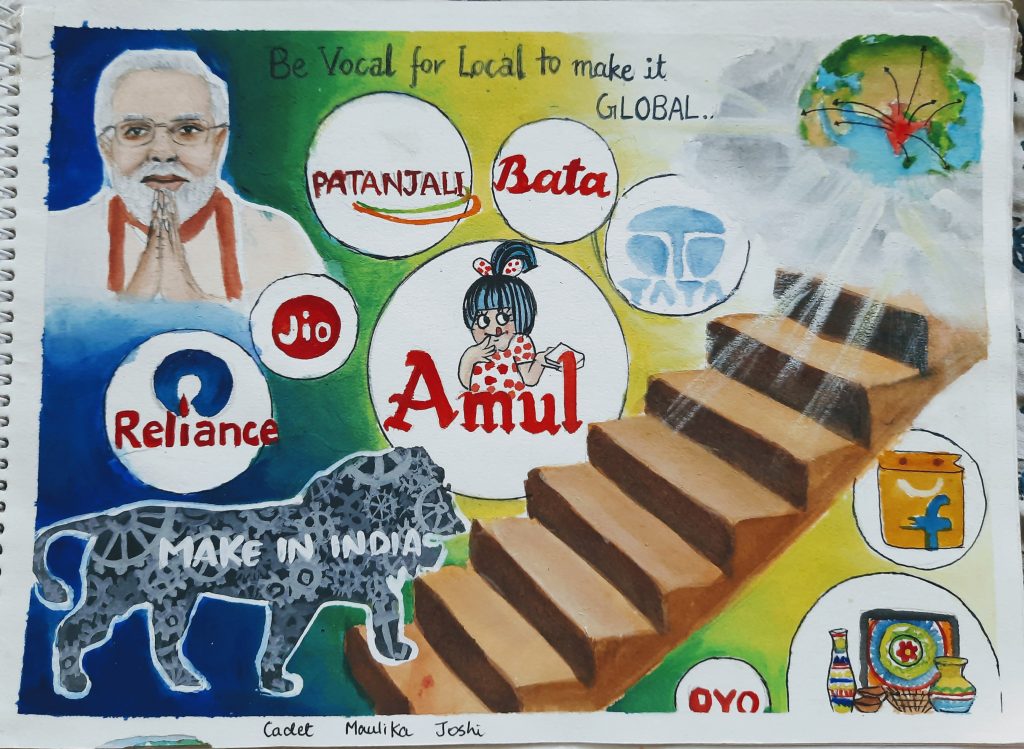 Be Vocal for Local to make it
GLOBAL..
PATANJALI
Bata
TATA
Jio
Reliance
Amul
MAKE IN INDIA
f
OYO
Cadet Maulika Joshi